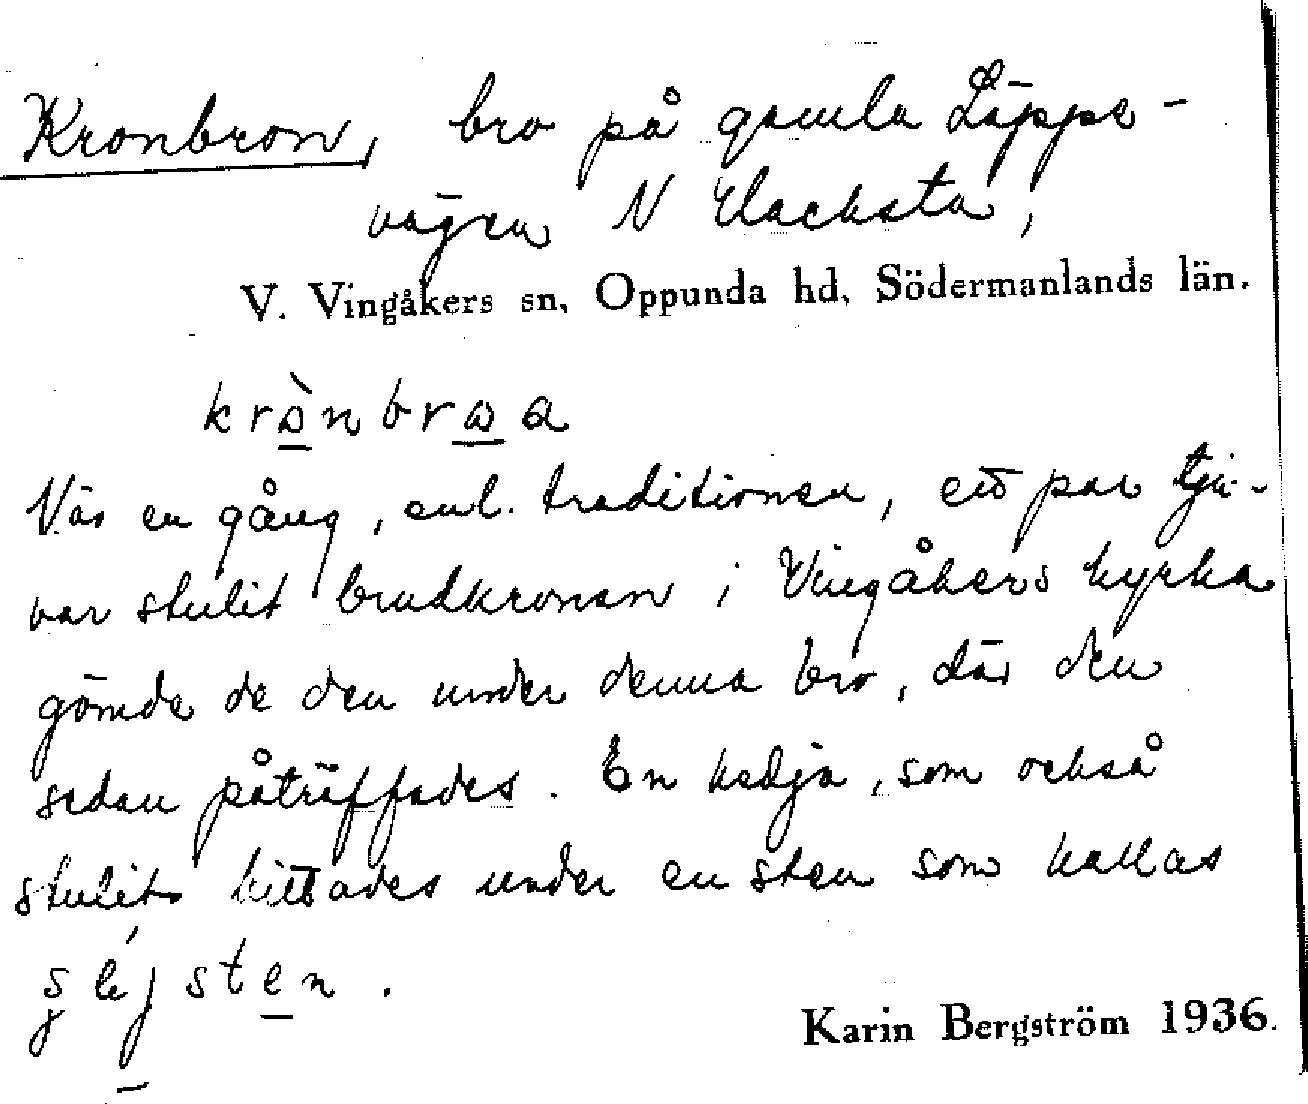 Kronbron, bro på gamla Läppe-
vägen N Klacksta,
V. Vingåkers sn, Oppunda hd, Södermanlands län.
krònbroa
När en gång, enl. traditionen, ett par tju-
var stulit brudkronan i Vingåkers kyrka
gömde de den under denna bro, där den
sedan påträffades. En kedja, som också
stulits hittades under en sten som kallas
sten.
Karin Bergström 1936.